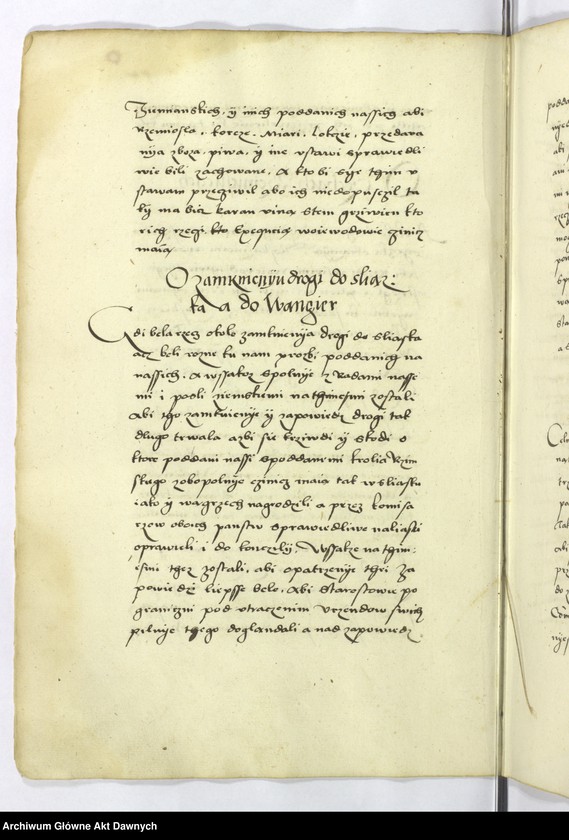 Ziemianskich, y inich poddanich nassich abi
rzemiosla, korcze, Miari, lokzie, przedava
nija zboza, piwa, y ine vstawi sprawiedli
wie bili zachowane. A kto bi sije thim v
stawam przeciwil abo ich niedopuscził ta
ki ma bicz karan vina stem grziwien kto
rich rzeczi, kto Exequcia woiewodowie czinicz
maia
O zamknienyu drogi do sliaz:
ka A do Wangier
Gdi bela rzecz okolo zamknienija drogi do sliaska
acz beli rozne ku nam prozbi poddanich na
nassich. A wssakoz spolnije z Radami nasse
mi i posli ziemskiemi na thimesmi zostali
Abi tho zamknienije y zapowiedz drogi tak
dlugo trwala azbi sie krziwdi y skodi o
ktore poddani nassi spoddanemi krolia Rzim
skiego zobopolnije czinicz maia tak w sliasku
iako y wagrzech nagrodzili a przez komisa
rzow oboich panstw sprawiedliwe naliasli
oprawieli i do konczily. Wssakze na thim:
esmi thez zostali, abi opatrzenije thei za
powiedzi liepsse belo. Abi starostowie po
graniczni pod vtraczenim vrzendow swich
pilnije thego doglandali a nad zapowiedz
Archiwum Główne Akt Dawnych